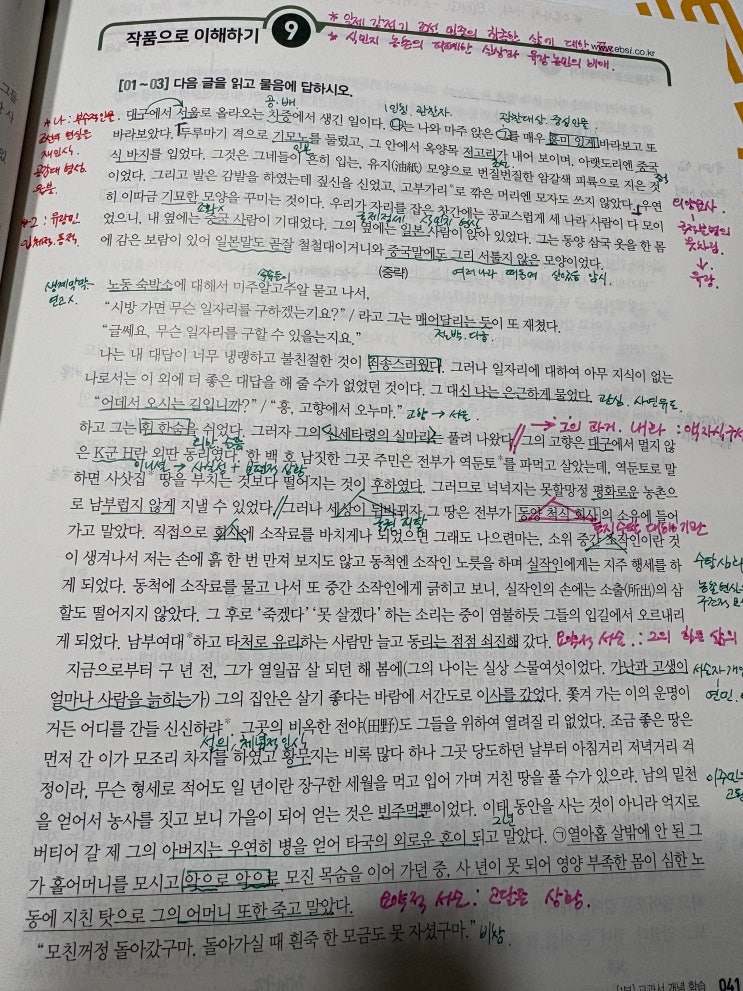 * 일제 강점기 조선 민족의 참혹한 삶이 대한
작품으로 이해하기 9 www.ebsi.co.kr
* 식민지 농촌의 피폐한 실상과 유랑 농민의 비애.
[01~03] 다음 글을 읽고 물음에 답하시오.
공·배
1인칭 관찰자. 관찰대상. 중심인물
대구에서 서울로 올라오는 차중에서 생긴 일이다. 나는 나와 마주 앉은 그를 매우 흥미 있게 바라보고 또
바라보았다. 두루마기 격으로 기모노를 둘렀고, 그 안에서 옥양목 저고리가 내어 보이며, 아랫도리엔 중국
식 바지를 입었다. 그것은 그네들이 흔히 입는, 유지(油紙) 모양으로 번질번질한 암갈색 피륙으로 지은 것
이었다. 그리고 발은 감발을 하였는데 짚신을 신었고, 고부가리*로 깎은 머리엔 모자도 쓰지 않았다. 우연
히 이따금 기묘한 모양을 꾸미는 것이다. 우리가 자리를 잡은 찻간에는 공교롭게 세 나라 사람이 다 모이
었으니, 내 옆에는 중국 사람이 기대었다. 그의 옆에는 일본 사람이 앉아 있었다. 그는 동양 삼국 옷을 한 몸
에 감은 보람이 있어 일본말도 곧잘 철철대이거니와 중국말에도 그리 서툴지 않은 모양이었다.
(중략)
노동 숙박소에 대해서 미주알고주알 묻고 나서,
“시방 가면 무슨 일자리를 구하겠는기요?” / 라고 그는 매어달리는 듯이 또 재쳤다.
“글쎄요, 무슨 일자리를 구할 수 있을는지요.”
나는 내 대답이 너무 냉랭하고 불친절한 것이 죄송스러웠다. 그러나 일자리에 대하여 아무 지식이 없는
나로서는 이 외에 더 좋은 대답을 해 줄 수가 없었던 것이다. 그 대신 나는 은근하게 물었다. 관심. 사연유도
“어데서 오시는 길입니까?” / “흥, 고향에서 오누마.” 고향 → 서울.
하고 그는 휘 한숨을 쉬었다. 그러자 그의 신세타령의 실마리는 풀려 나왔다. 그의 고향은 대구에서 멀지 않
→ 그의 과거. 내화 : 액자식구성
은 K군 H란 외딴 동리였다. 한 백 호 남짓한 그곳 주민은 전부가 역둔토*를 파먹고 살았는데, 역둔토로 말
하면 사삿집* 땅을 부치는 것보다 떨어지는 것이 후하였다. 그러므로 넉넉지는 못할망정 평화로운 농촌으
로 남부럽지 않게 지낼 수 있었다. 그러나 세상이 뒤바뀌자 그 땅은 전부가 동양 척식 회사의 소유에 들어
가고 말았다. 직접으로 회사에 소작료를 바치게나 되었으면 그래도 나으련마는, 소위 중간 소작인이란 것
이 생겨나서 저는 손에 흙 한 번 만져 보지도 않고 동척엔 소작인 노릇을 하며 실작인에게는 지주 행세를 하
게 되었다. 동척에 소작료를 물고 나서 또 중간 소작인에게 긁히고 보니, 실작인의 손에는 소출(所出)의 삼
할도 떨어지지 않았다. 그 후로 ‘죽겠다’ ‘못 살겠다’ 하는 소리는 중이 염불하듯 그들의 입길에서 오르내리
게 되었다. 남부여대*하고 타처로 유리하는 사람만 늘고 동리는 점점 쇠진해 갔다. 요약적 서술
지금으로부터 구 년 전, 그가 열일곱 살 되던 해 봄에(그의 나이는 실상 스물여섯이었다. 가난과 고생이
얼마나 사람을 늙히는가) 그의 집안은 살기 좋다는 바람에 서간도로 이사를 갔었다. 쫓겨 가는 이의 운명이
거든 어디를 간들 신신하랴*. 그곳의 비옥한 전야(田野)도 그들을 위하여 열려질 리 없었다. 조금 좋은 땅은
먼저 간 이가 모조리 차지를 하였고 황무지는 비록 많다 하나 그곳 당도하던 날부터 아침거리 저녁거리 걱
정이라, 무슨 형세로 적어도 일 년이란 장구한 세월을 먹고 입어 가며 거친 땅을 풀 수가 있으랴. 남의 밑천
을 얻어서 농사를 짓고 보니 가을이 되어 얻는 것은 빈주먹뿐이었다. 이태 동안을 사는 것이 아니라 억지로
2년
버티어 갈 제 그의 아버지는 우연히 병을 얻어 타국의 외로운 혼이 되고 말았다. ㉠열아홉 살밖에 안 된 그
가 홀어머니를 모시고 악으로 악으로 모진 목숨을 이어 가던 중, 사 년이 못 되어 영양 부족한 몸이 심한 노
동에 지친 탓으로 그의 어머니 또한 죽고 말았다. 요약적 서술 : 고달픈 상황.
“모친꺼정 돌아갔구마. 돌아가실 때 흰죽 한 모금도 못 자셨구마.” 비참.
[1부] 교과서 개념 학습 041